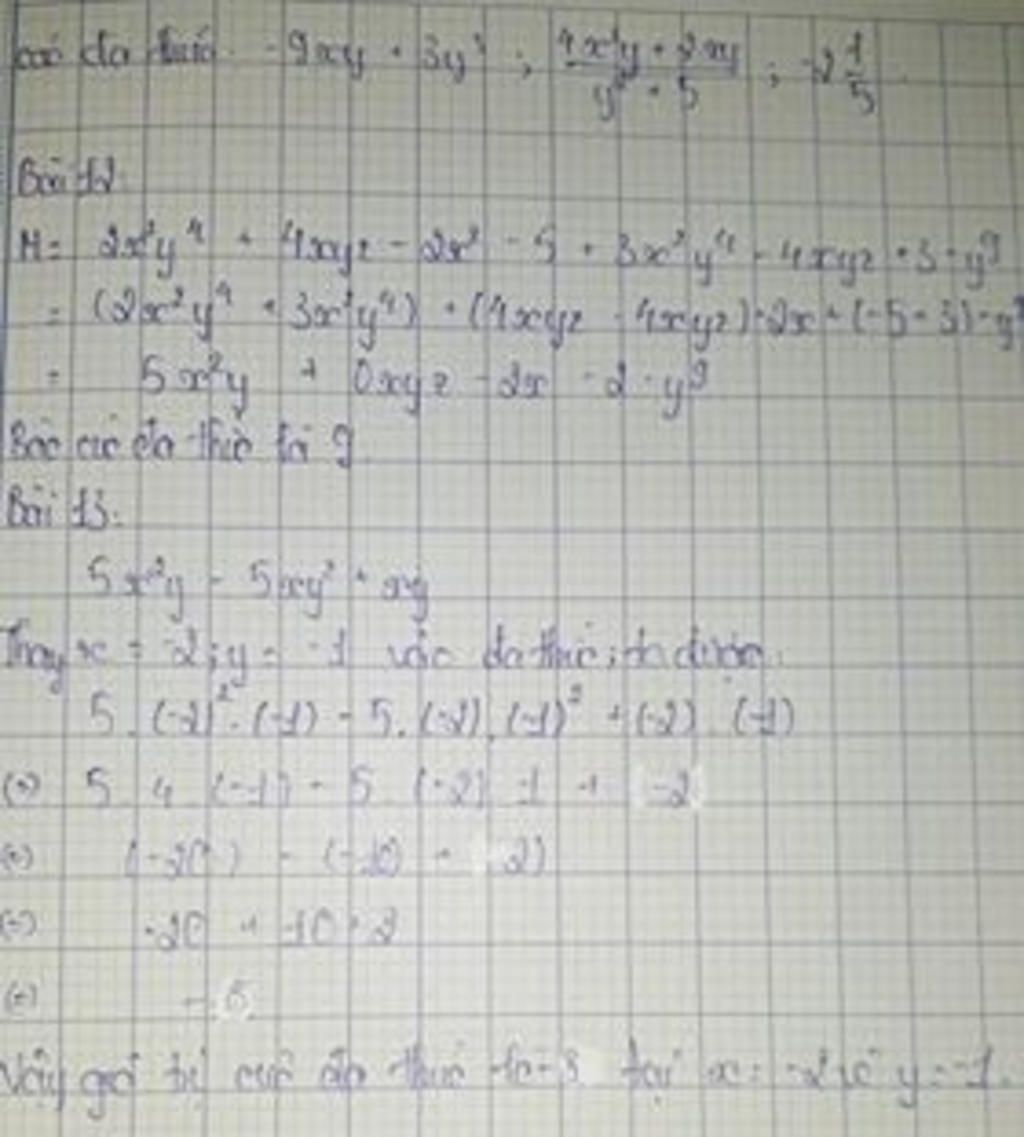 các đa thức -9xy + 3y³ ; (4x²y + 2xy)/(y² + 5) ; -2 1/5
Bài 12
M = 2x²y⁴ + 4xyz - 2x² - 5 + 3x²y⁴ - 4xyz + 3 - y⁹
= (2x²y⁴ + 3x²y⁴) + (4xyz - 4xyz) - 2x + (-5 + 3) - y⁹
= 5x²y + 0xyz - 2x - 2 - y⁹
Bậc của đa thức là 9
Bài 13.
5x²y - 5xy² + xy
Thay x = -2 ; y = -1 vào đa thức, ta được
5. (-2)². (-1) - 5. (-2). (-1)² + (-2). (-1)
(=) 5 4 (-1) - 5 (-2) 1 + 2
(=) (-20) - (-10) + 2)
(=) -20 + 10 + 2
(=) -8
Vậy giá trị của đa thức là -8 tại x = -2 và y = -1.